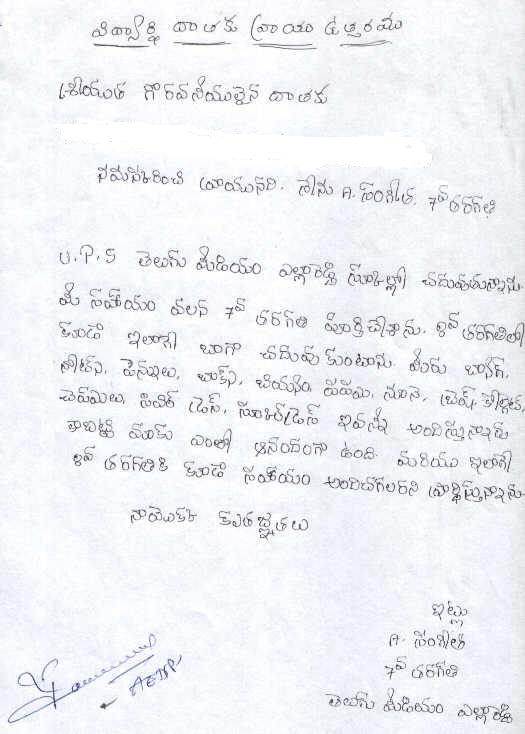 విద్యార్థి దాతకు వ్రాయు ఉత్తరము
శ్రీయుత గౌరవనీయులైన దాతకు
నమస్కరించి వ్రాయునది. నేను A. సంగీత. 7వ తరగతి
U.P.S తెలుగు మీడియం ఎల్లారెడ్డి స్కూల్లో చదువుతున్నాను
మీ సహాయం వలన 7వ తరగతి పూర్తిచేశాను. 8వ తరగతిలో
కూడా ఇలాగే బాగా చదువుకుంటాను. మీరు బ్యాగ్,
నోట్స్, పెన్నులు, బాక్స్, బియ్యం, పప్పు, నూనె, బ్రష్, పేస్టు,
చెప్పులు, సివిల్ డ్రెస్, స్కూల్ డ్రెస్ ఇవన్నీ అందిస్తున్నారు
కాబట్టి మాకు ఎంతో ఆనందంగా ఉంది. మరియు ఇలాగే
8వ తరగతికి కూడా సహాయం అందించగలరని ప్రార్థిస్తున్నాను.
నాయొక్క కృతజ్ఞతలు
ఇట్లు
A. సంగీత
7వ తరగతి
తెలుగు మీడియం ఎల్లారెడ్డి